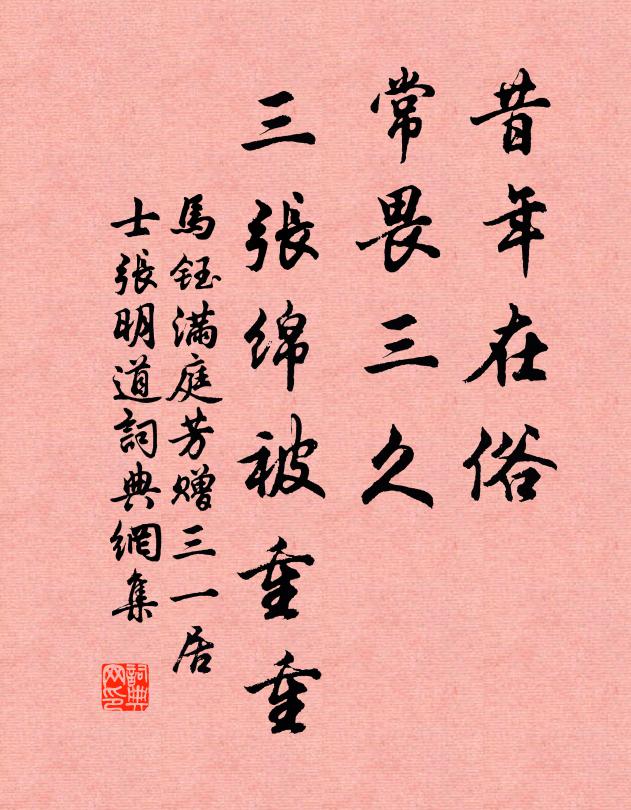 昔年在俗
常畏三久
三張綿被重重
馬鈺滿庭芳赠三一居
士張明道詞典網集
詞典
网印